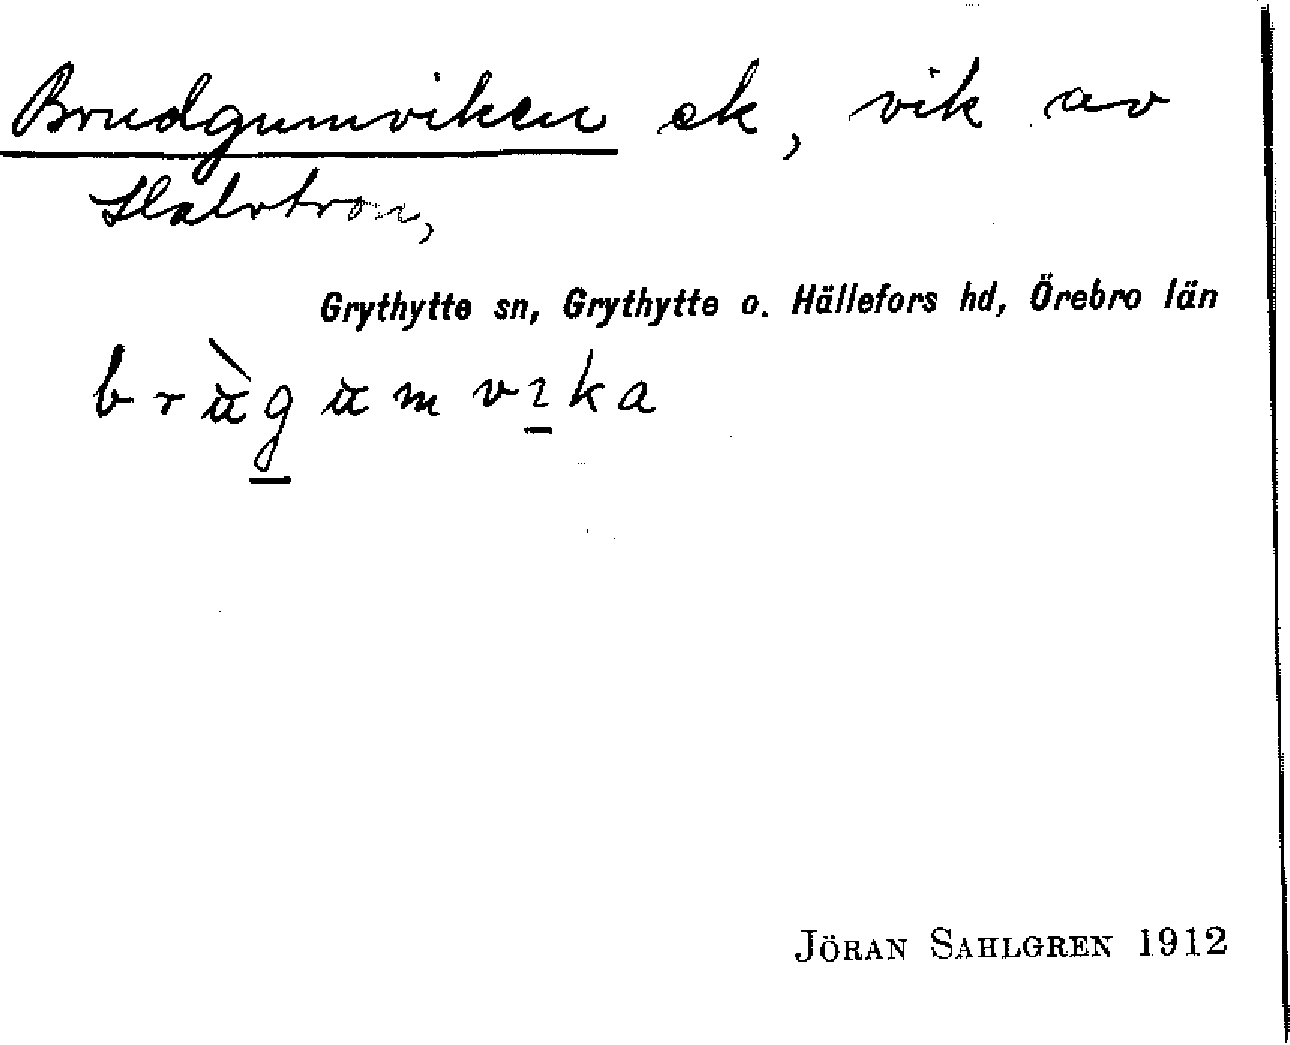 Brudgumviken ek, vik av
Halvtron,
Grythytte sn, Grythytte o. Hällefors hd, Örebro län
brùgumvıka
JÖRAN SAHLGREN 1912